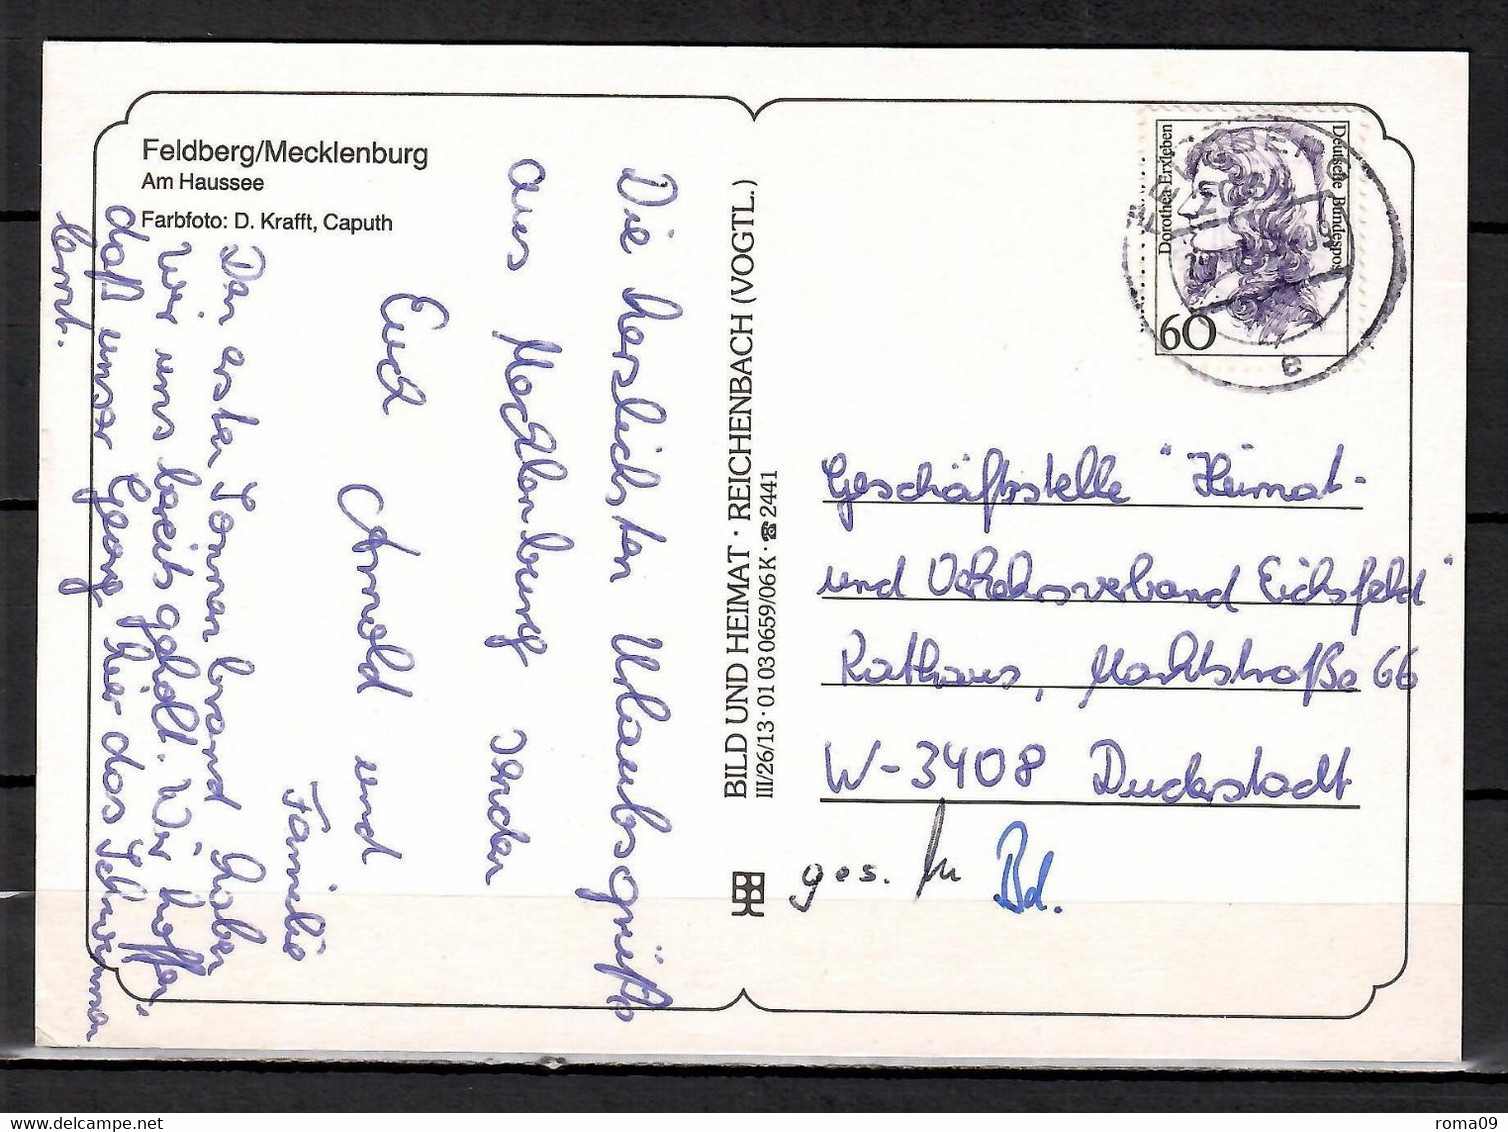 Feldberg/Mecklenburg
Am Haussee
Farbfoto: D. Krafft, Caputh
Die herzlichsten Urlaubsgrüße
aus Mecklenburg senden
Euch Arnold und
Familie
Den ersten Sonnenbrand haben
wir uns bereits geholt. Wir hoffen,
daß unser Georg hier das Schwimmen
lernt.
BILD UND HEIMAT · REICHENBACH (VOGTL.)
III/26/13 · 01 03 0659/06 K · ☎ 2441
Deutsche Bundespost
Dorothea Erxleben
60
e
Geschäftsstelle "Heimat-
und Verkehrsverband Eichsfeld"
Rathaus, Marktstraße 66
W-3408 Duderstadt
ges. Bd.
roma09